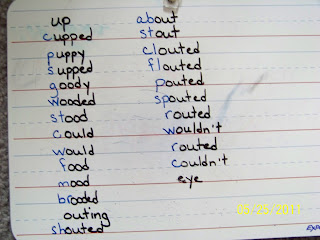 up
cupped
puppy
supped
goody
wooded
stood
could
would
food
mood
brooded
outing
shouted
about
stout
clouted
flouted
pouted
spouted
routed
wouldn't
routed
couldn't
eye